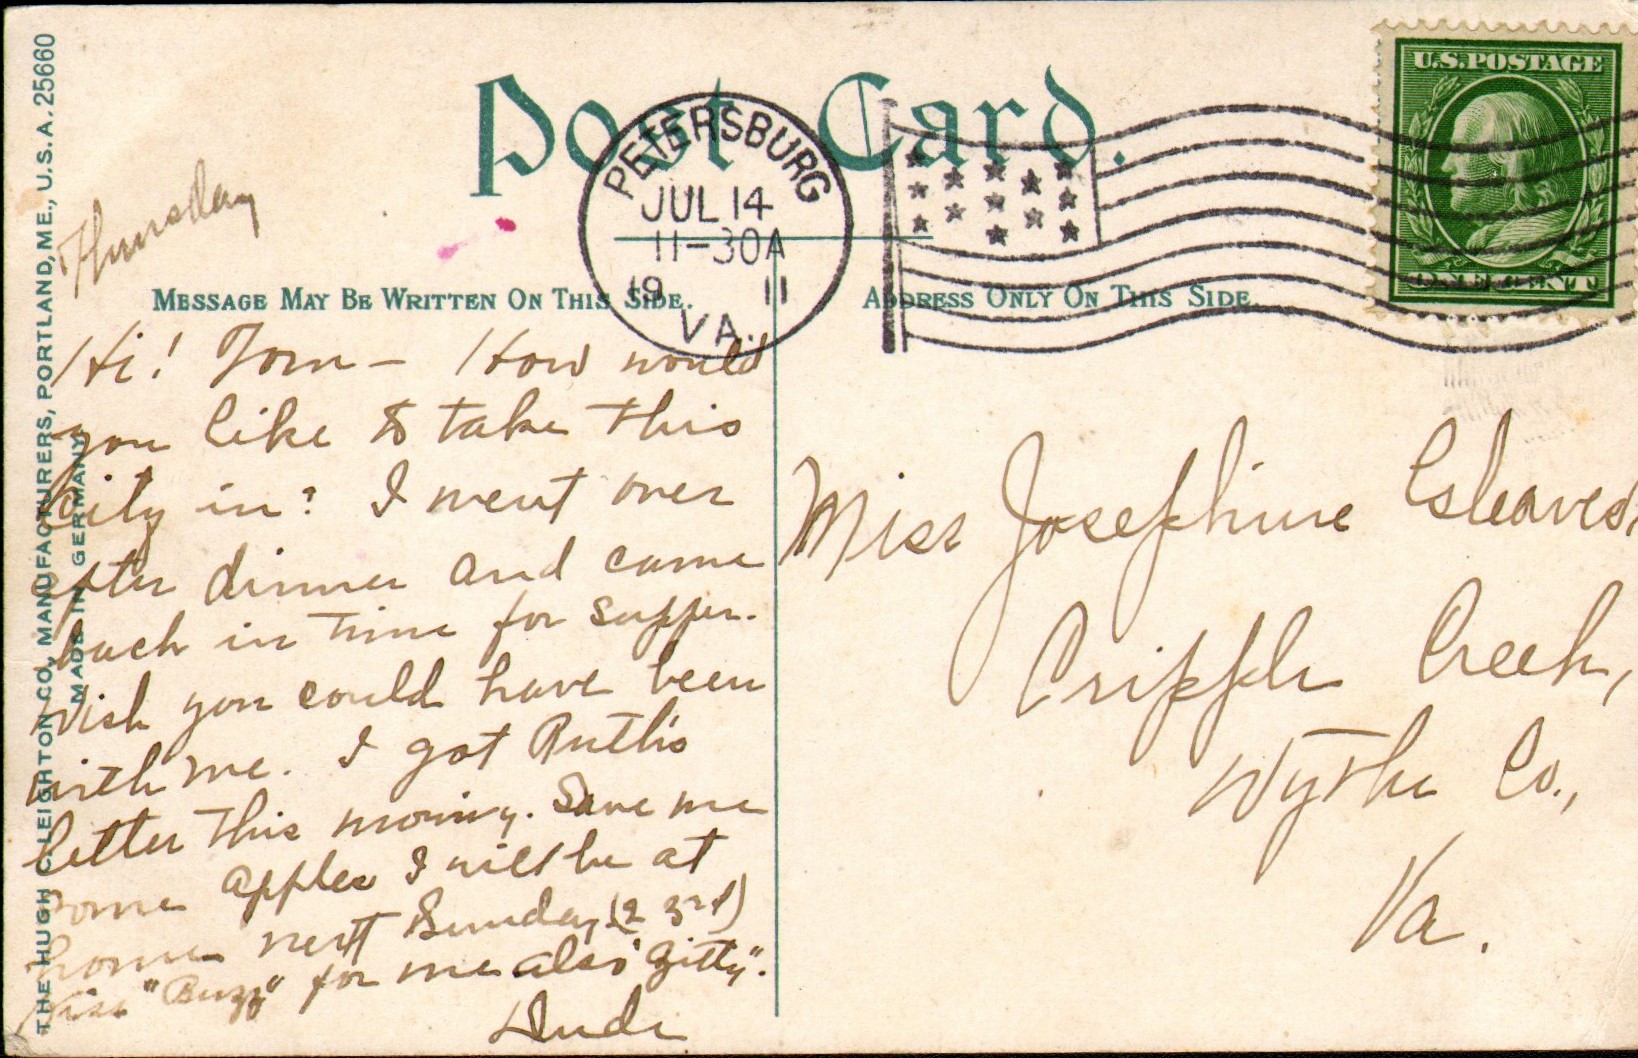 Post Card.
PETERSBURG
JUL 14
11-30A
19 11
VA.
U.S. POSTAGE
ONE CENT
THE HUGH C. LEIGHTON CO., MANUFACTURERS, PORTLAND, ME., U.S.A. 25660
MADE IN GERMANY
Thursday
MESSAGE MAY BE WRITTEN ON THIS SIDE.
ADDRESS ONLY ON THIS SIDE.
Hi! Tom – How would
you like to take this
city in? I went over
after dinner and came
back in time for supper.
Wish you could have been
with me. I got Ruth's
letter this morning. Save me
some apples I will be at
home next Sunday (23rd)
Kiss "Buzz" for me also "Gitty".
Dude
Miss Josephine
Cripple Creek,
Wythe Co.,
Va.